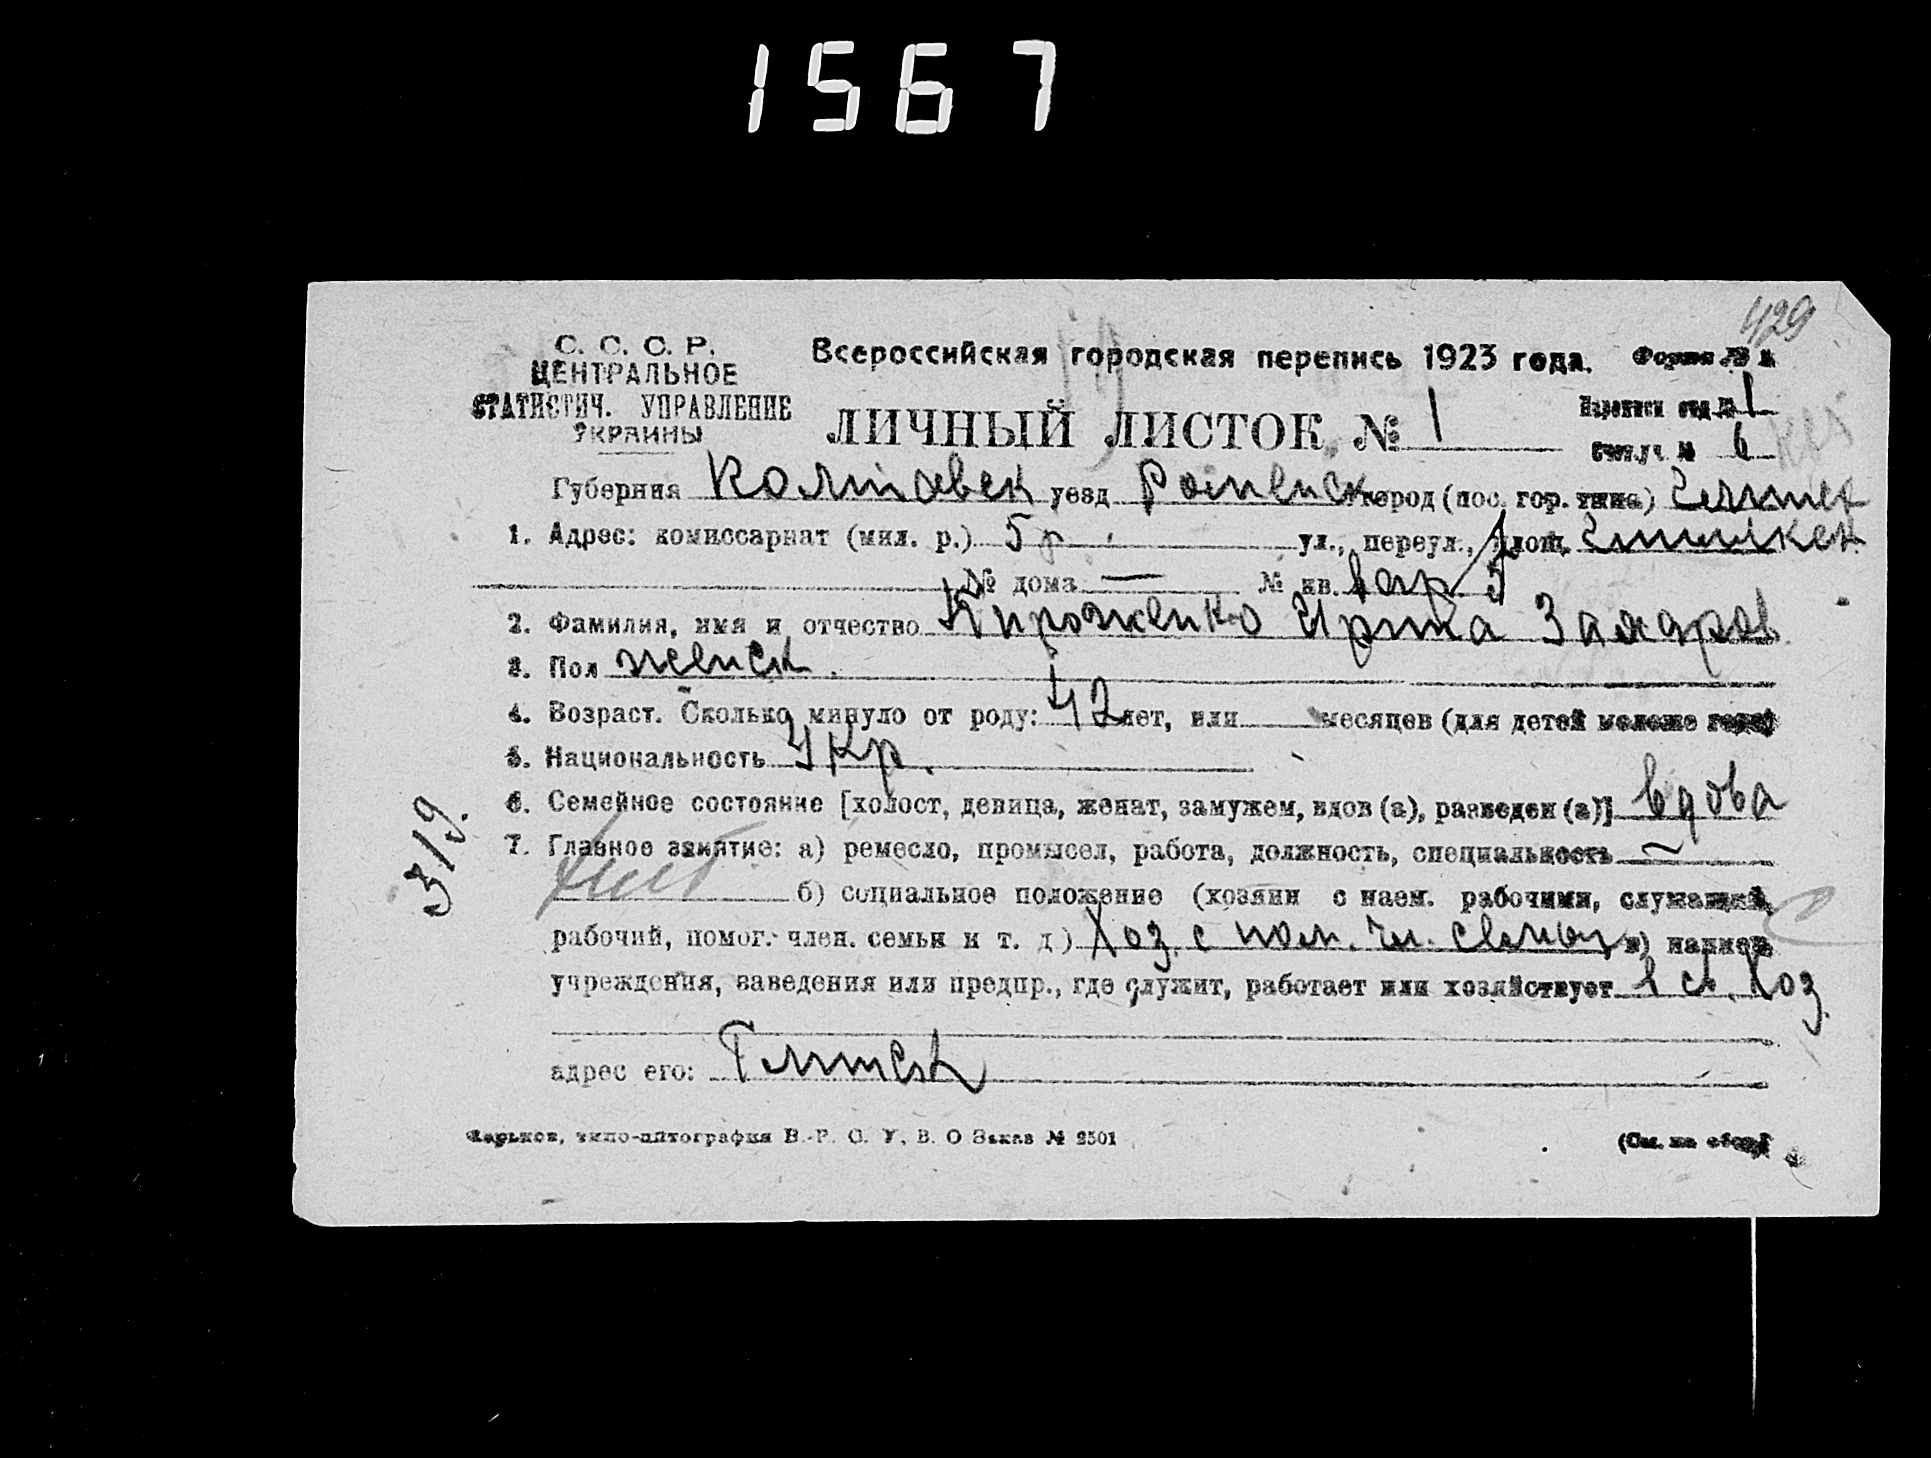 1567
429
С. С. С. Р.
ЦЕНТРАЛЬНОЕ
СТАТИСТИЧ. УПРАВЛЕНИЕ
УКРАИНЫ
Всероссийская городская перепись 1923 года. Форма №
ЛИЧНЫЙ ЛИСТОК № 1
Переписн отд № 1
Счетн. уч. № 6
Губерния уезд Роменск город (пос. гор. типа)
1. Адрес: комиссариат (мил. р.) 5 р ул., переул., площ.
№ дома — № кв.
2. Фамилия, имя и отчество
3. Пол женск.
4. Возраст. Сколько минуло от роду: 42 лет, или месяцев (для детей моложе года)
5. Национальность Укр.
6. Семейное состояние [холост, девица, женат, замужем, вдов (а), разведен (а)] вдова
7. Главное занятие: а) ремесло, промысел, работа, должность, специальность —
б) социальное положение (хозяин с наем. рабочими, служащий,
рабочий, помог. член. семьи и т. д) Хоз. с пом. чл. семьи в) назнен
учреждения, заведения или предпр., где служит, работает или хозяйствует в с. хоз.
адрес его:
319.
Харьков, типо-литография В.-Р. О. У. В. О Заказ № 2501
(См. на обор.)